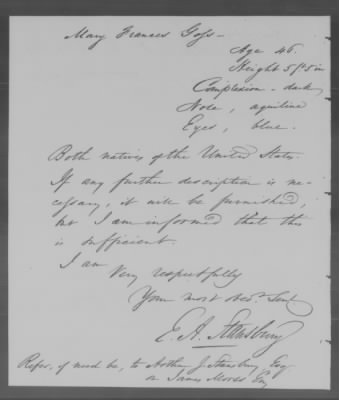 Mary Frances Goss -
Age 46.
Height 5 ft 5 in
Complexion - dark
Nose, aquiline
Eyes, blue.
Both natives of the United States.
If any further description is ne-
cessary, it will be furnished,
but I am informed that this
is sufficient.
I am
Very respectfully
Your most obdt Servt
E. A. Stansbury
Refer, if need be, to Arthur J. Stansbury Esq
or James Esq